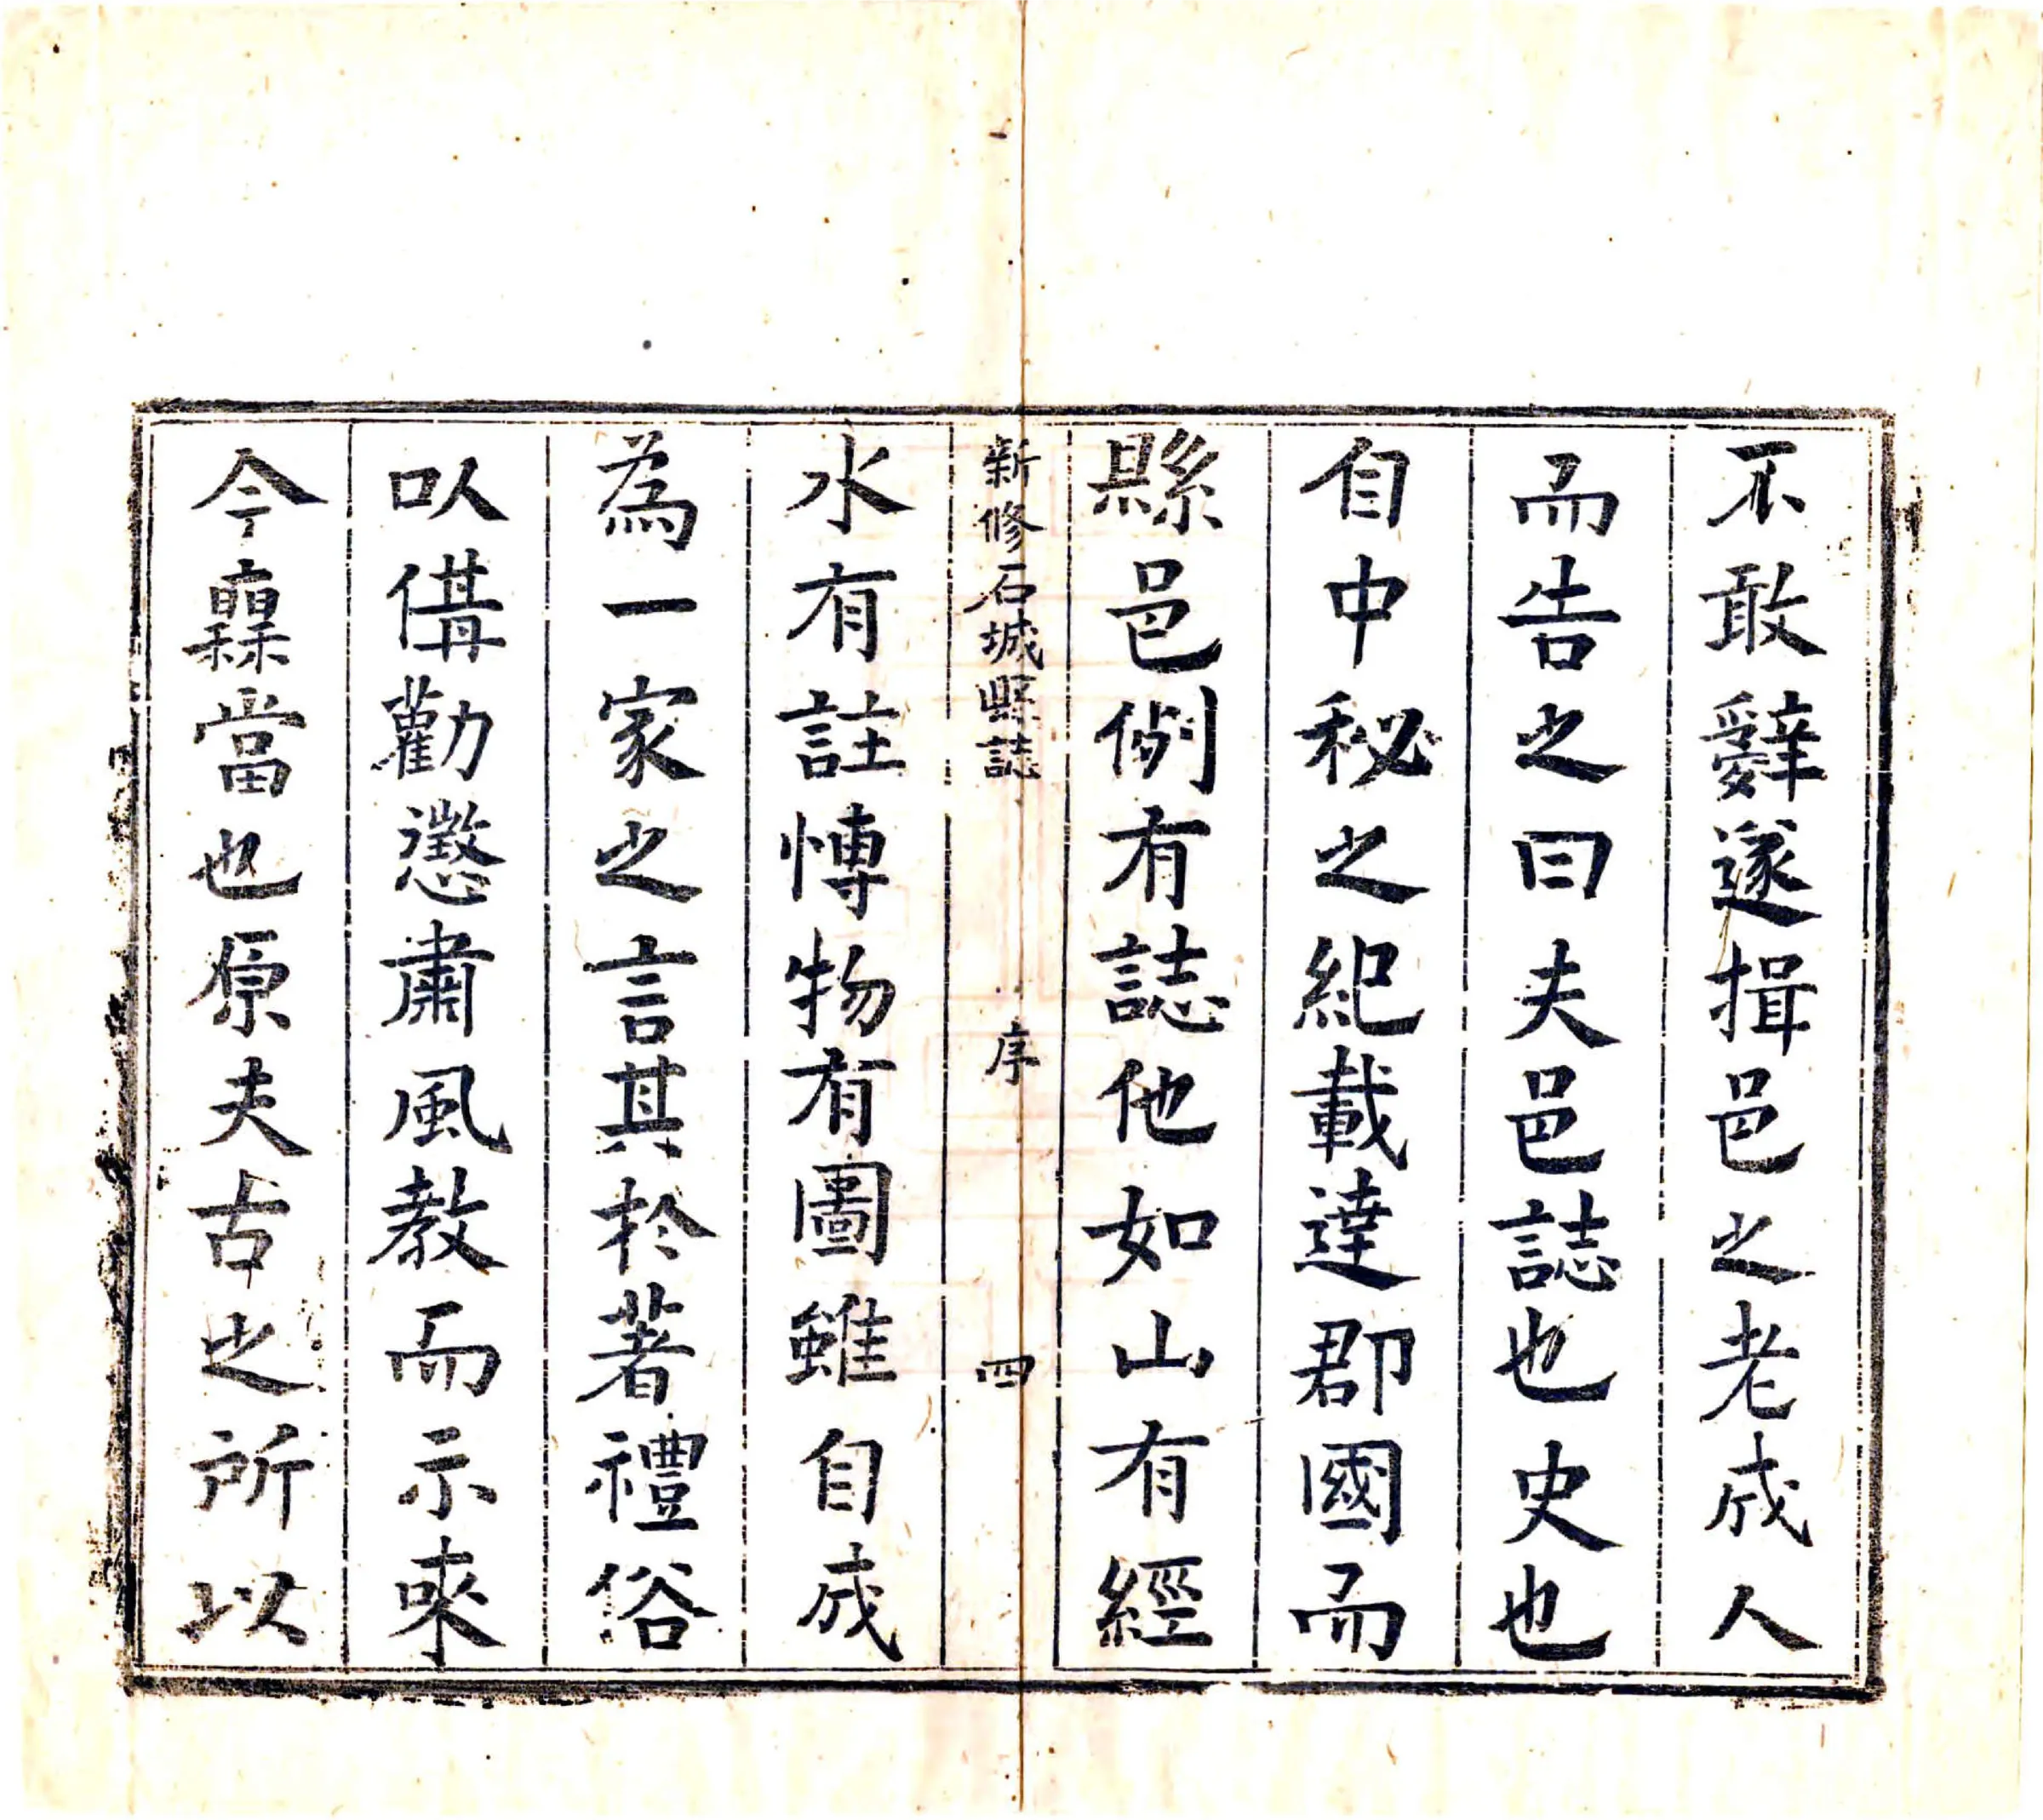 不敢辭遂揖邑之老成人
而告之曰夫邑誌也史也
自中秘之紀載達郡國而
縣邑例有誌他如山有經
新修石城縣誌 序 四
水有註博物有圖雖自成
為一家之言其於著禮俗
以備勸懲肅風教而示來
今厵當也原夫古之所以